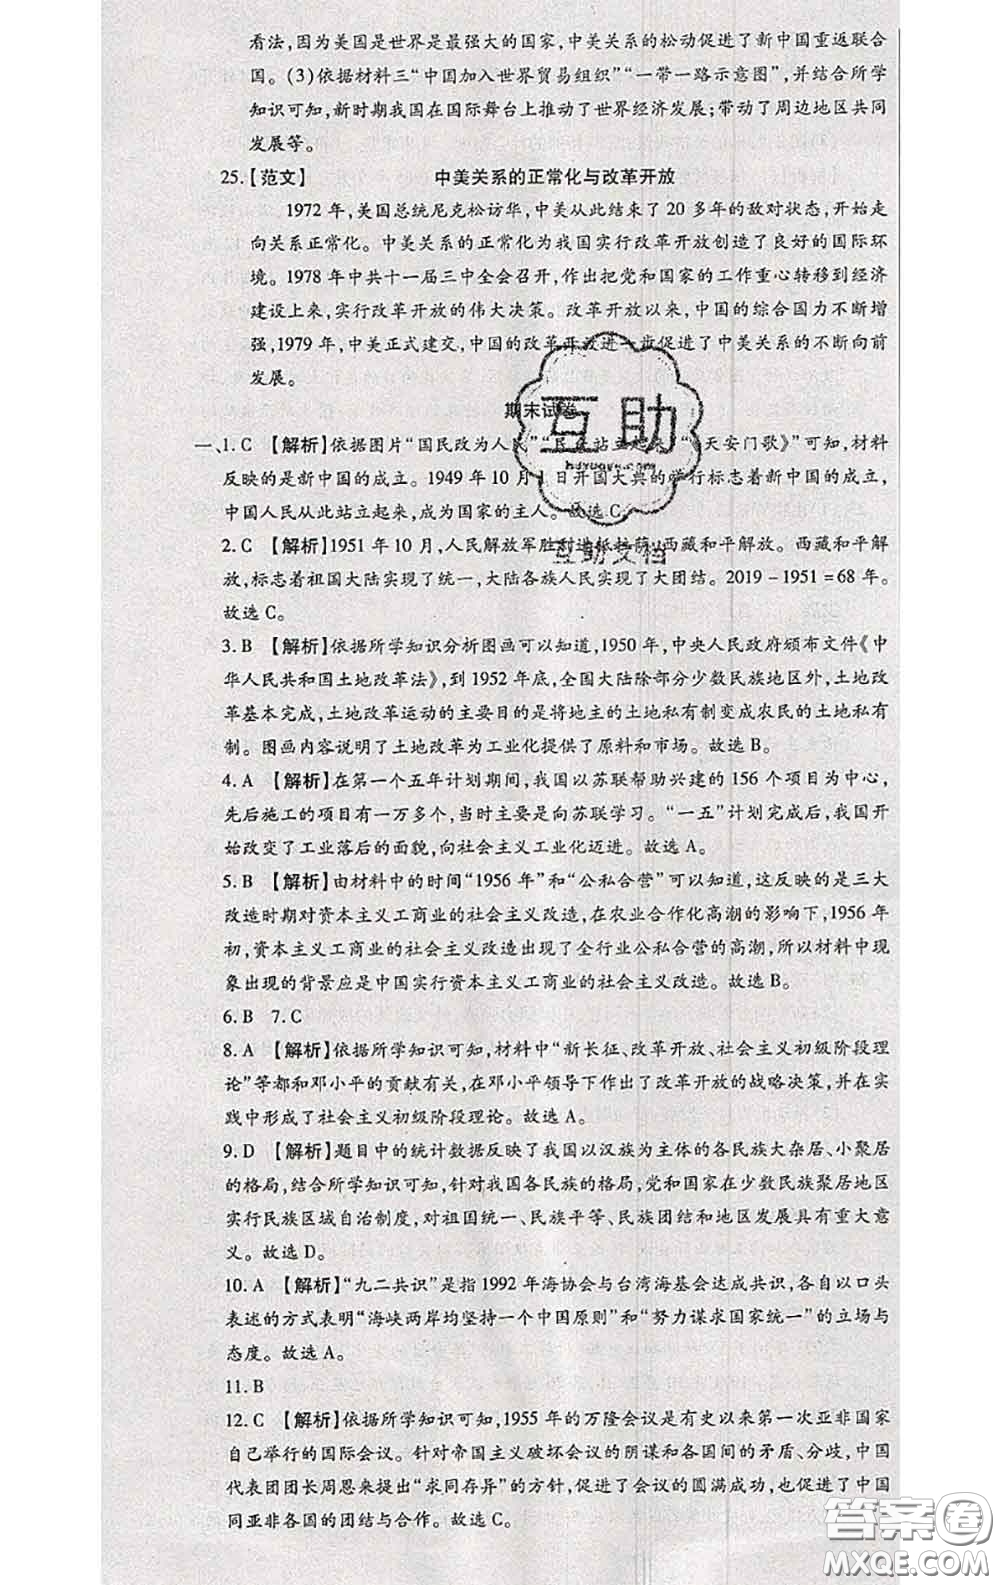 看法,因为美国是世界是最强大的国家,中美关系的松动促进了新中国重返联合
国。(3)依据材料三“中国加入世界贸易组织”“一带一路示意图”,并结合所学
知识可知,新时期我国在国际舞台上推动了世界经济发展;带动了周边地区共同
发展等。
25.【范文】 中美关系的正常化与改革开放
1972 年,美国总统尼克松访华,中美从此结束了 20 多年的敌对状态,开始走
向关系正常化。中美关系的正常化为我国实行改革开放创造了良好的国际环
境。1978 年中共十一届三中全会召开,作出把党和国家的工作重心转移到经济
建设上来,实行改革开放的伟大决策。改革开放以来,中国的综合国力不断增
强,1979 年,中美正式建交,中国的改革开放进一步促进了中美关系的不断向前
发展。
期末试卷
一、1. C 【解析】依据图片“国民改为人民”“ 站立起来 天安门歌》”可知,材料
反映的是新中国的成立。1949 年 10 月 1 日开国大典的举行标志着新中国的成立,
中国人民从此站立起来,成为国家的主人。故选 C。
2. C 【解析】1951 年 10 月,人民解放军胜利进抵拉萨,西藏和平解放。西藏和平解
放,标志着祖国大陆实现了统一,大陆各族人民实现了大团结。2019 - 1951 = 68 年。
故选 C。
3. B 【解析】依据所学知识分析图画可以知道,1950 年,中央人民政府颁布文件《中
华人民共和国土地改革法》,到 1952 年底,全国大陆除部分少数民族地区外,土地改
革基本完成,土地改革运动的主要目的是将地主的土地私有制变成农民的土地私有
制。图画内容说明了土地改革为工业化提供了原料和市场。故选 B。
4. A 【解析】在第一个五年计划期间,我国以苏联帮助兴建的 156 个项目为中心,
先后施工的项目有一万多个,当时主要是向苏联学习。“一五”计划完成后,我国开
始改变了工业落后的面貌,向社会主义工业化迈进。故选 A。
5. B 【解析】由材料中的时间“1956 年”和“公私合营”可以知道,这反映的是三大
改造时期对资本主义工商业的社会主义改造,在农业合作化高潮的影响下,1956 年
初,资本主义工商业的社会主义改造出现了全行业公私合营的高潮,所以材料中现
象出现的背景应是中国实行资本主义工商业的社会主义改造。故选 B。
6. B 7. C
8. A 【解析】依据所学知识可知,材料中“新长征、改革开放、社会主义初级阶段理
论”等都和邓小平的贡献有关,在邓小平领导下作出了改革开放的战略决策,并在实
践中形成了社会主义初级阶段理论。故选 A。
9. D 【解析】题目中的统计数据反映了我国以汉族为主体的各民族大杂居、小聚居
的格局,结合所学知识可知,针对我国各民族的格局,党和国家在少数民族聚居地区
实行民族区域自治制度,对祖国统一、民族平等、民族团结和地区发展具有重大意
义。故选 D。
10. A 【解析】“九二共识”是指 1992 年海协会与台湾海基会达成共识,各自以口头
表述的方式表明“海峡两岸均坚持一个中国原则”和“努力谋求国家统一”的立场与
态度。故选 A。
11. B
12. C 【解析】依据所学知识可知,1955 年的万隆会议是有史以来第一次亚非国家
自己举行的国际会议。针对帝国主义破坏会议的阴谋和各国间的矛盾、分歧,中国
代表团团长周恩来提出“求同存异”的方针,促进了会议的圆满成功,也促进了中国
同亚非各国的团结与合作。故选 C。
互助
互助文档
答案圈
MXQE.COM